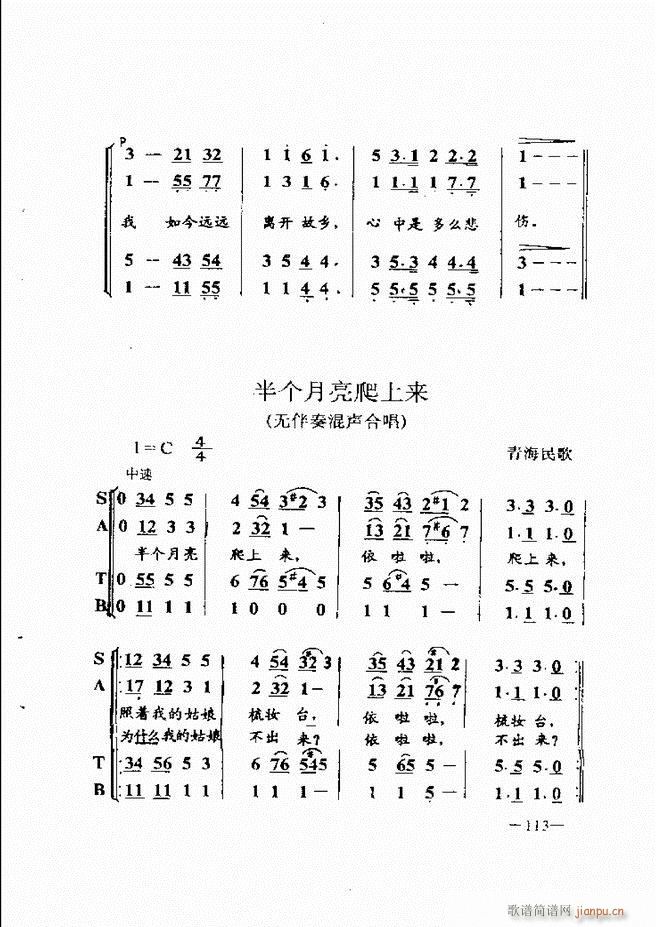 P
3 — 21 32 1 i 6 i. 5 3·1 2 2·2 1 - - -
1 — 55 77 1 3 1 6· 1 1·1 1 7·7 1 - - -
我 如今远远 离开故乡, 心中是多么悲 伤。
5 — 43 54 3 5 4 4. 3 5·3 4 4·4 3 - - -
1 — 11 55 1 1 4 4. 5 5·5 5 5·5 1 - - -
半个月亮爬上来
(无伴奏混声合唱)
1=C 4/4
青海民歌
中速
S 0 34 5 5 4 54 3#2 3 35 43 2#1 2 3·3 3·0
A 0 12 3 3 2 32 1 — 13 21 7#6 7 1·1 1·0
半个月亮 爬上来, 依啦啦, 爬上来,
T 0 55 5 5 6 76 5#4 5 5 6#4 5 — 5·5 5·0
B 0 11 1 1 1 0 0 0 1 1 1 — 1·1 1·0
S 12 34 5 5 4 54 32 3 35 43 21 2 3·3 3·0
A 17 12 3 1 2 32 1 — 13 21 76 7 1·1 1·0
照着我的姑娘 梳妆台, 依啦啦, 梳妆台,
为什么我的姑娘 不出来? 依啦啦, 不出来?
T 34 56 5 3 6 76 545 5 65 5 — 5·5 5·0
B 11 11 1 1 1 1 1 — 1 1 5 — 1·1 1·0
—113—
歌谱简谱网 jianpu.cn